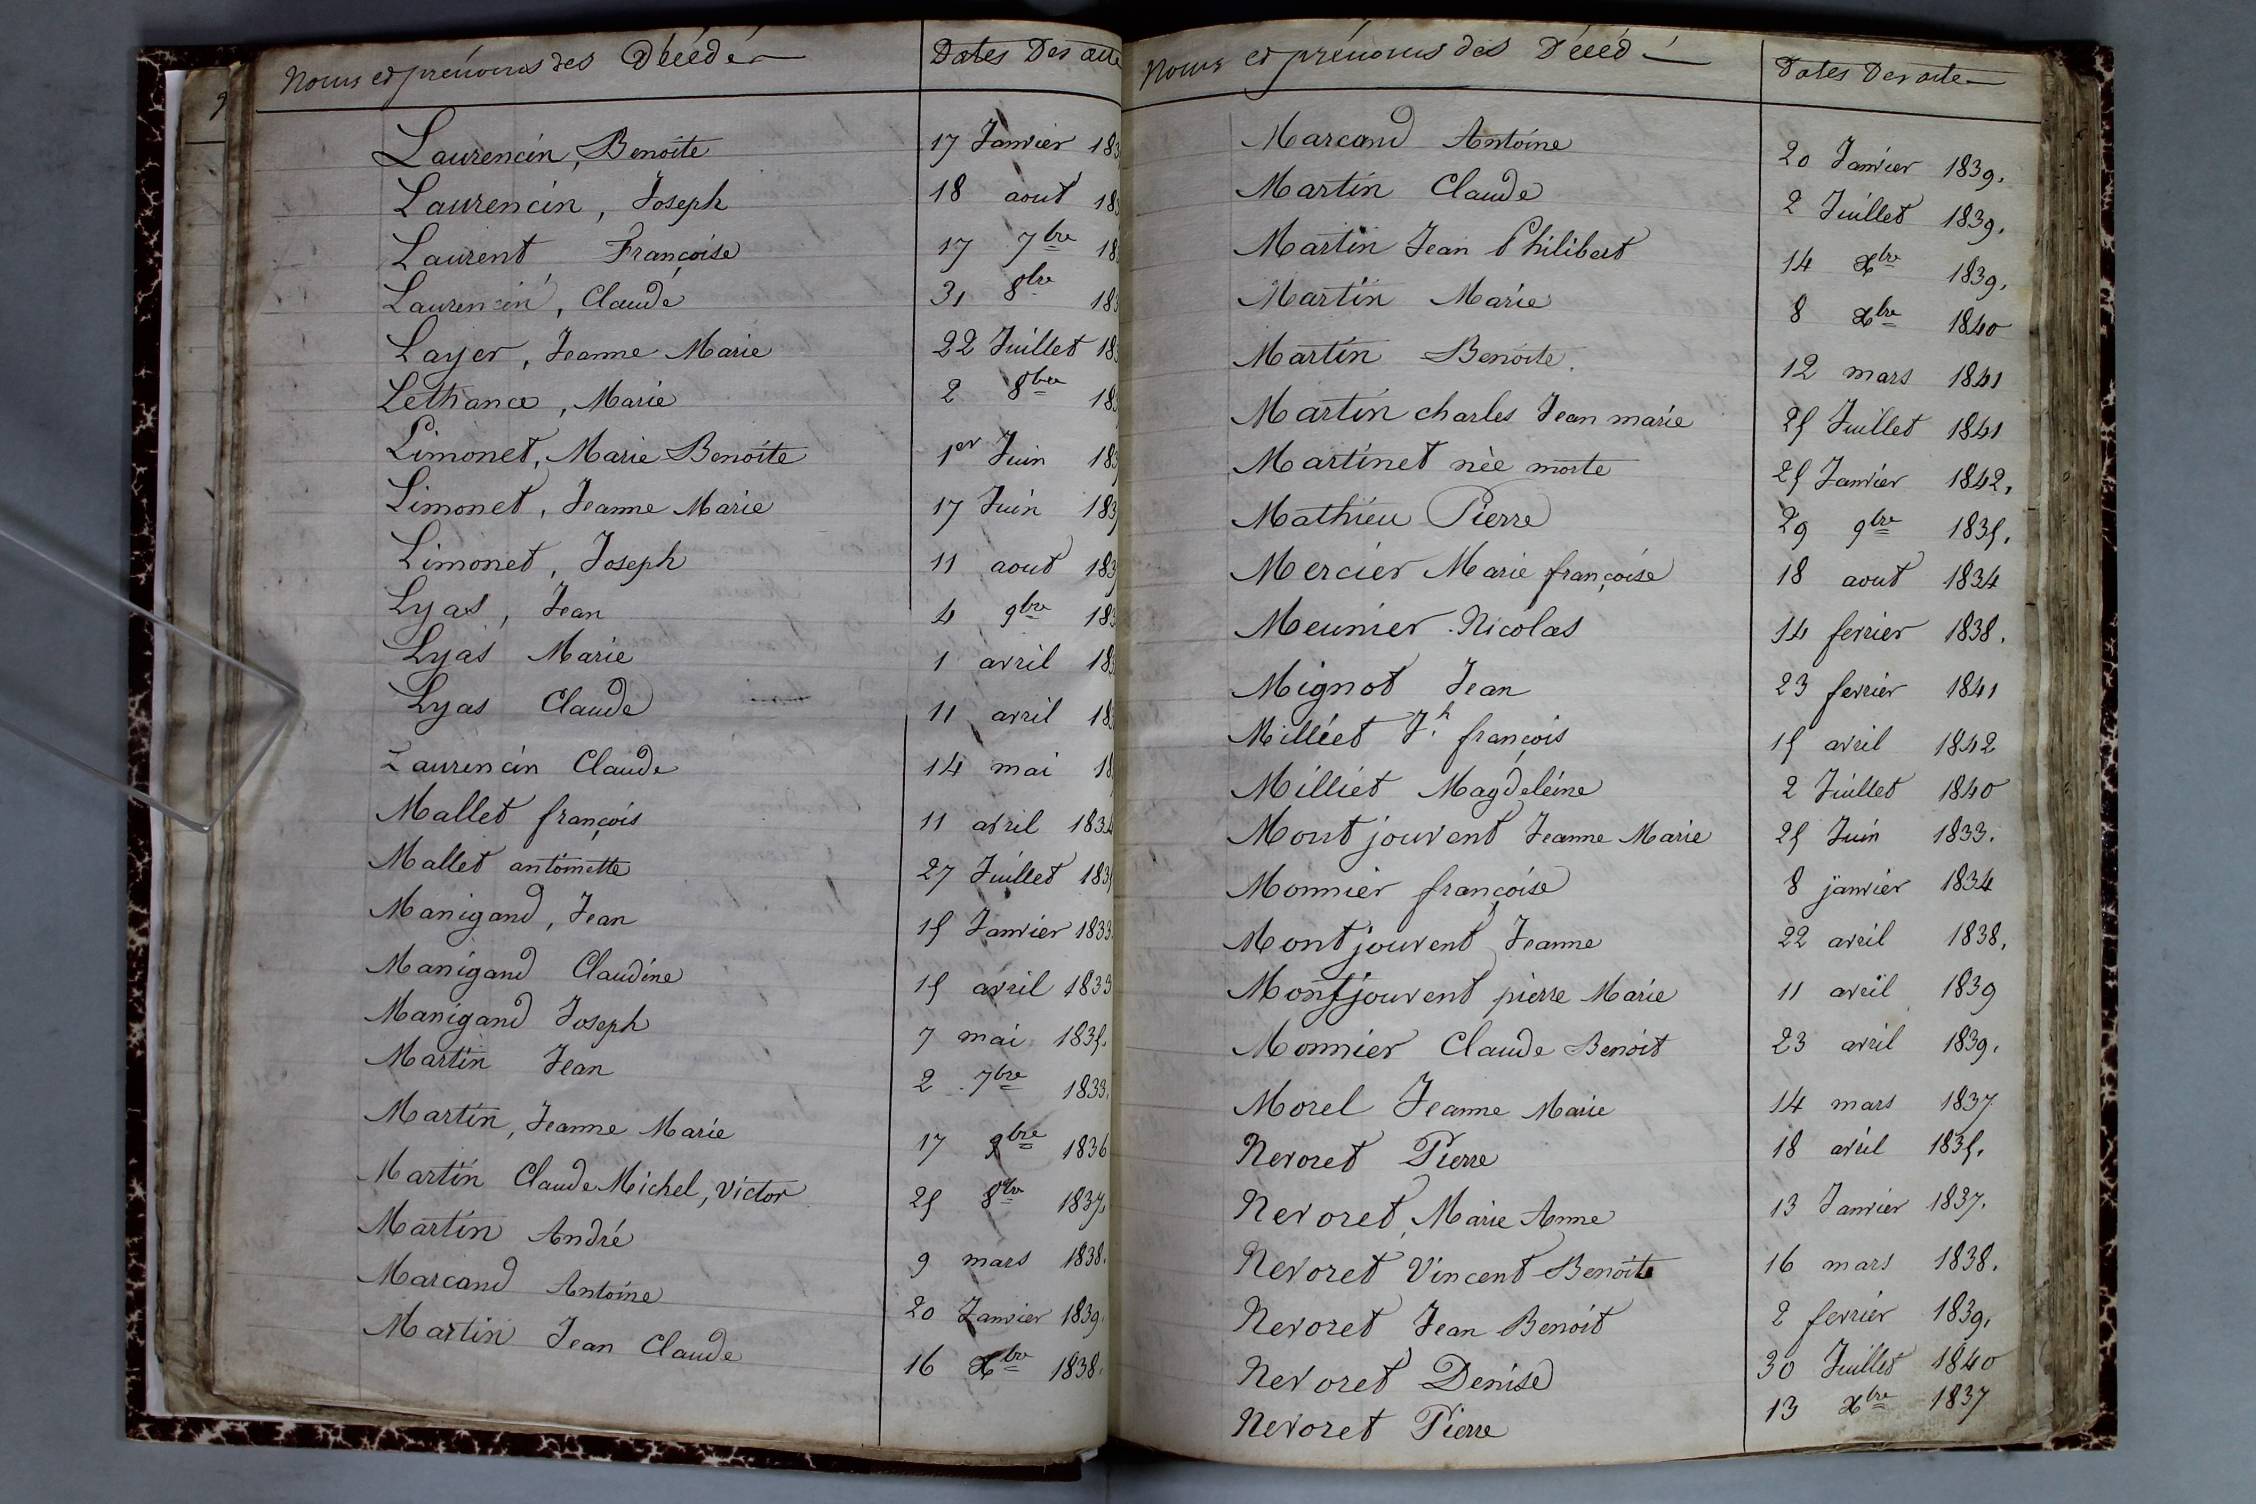 Noms et prénoms des Décédés Dates Des acte
Laurencin, Benoite 17 Janvier 183
Laurencin, Joseph 18 aout 183
Laurent Françoise 17 7bre 18
Laurencin, Claude 31 8bre 183
Layer, Jeanne Marie 22 Juillet 183
Lethance, Marie 2 8bre 183
Limonet, Marie Benoite 1er Juin 183
Limonet, Jeanne Marie 17 Juin 183
Limonet, Joseph 11 aout 183
Lyas, Jean 4 9bre 183
Lyas Marie 1 avril 18
Lyas Claude 11 avril 18
Laurencin Claude 14 mai 18
Mallet françois 11 avril 1834
Mallet antoinette 27 Juillet 183
Manigand, Jean 15 Janvier 1833
Manigand Claudine 15 avril 1833
Manigand Joseph 7 mai 1835.
Martin Jean 2 7bre 1833.
Martin, Jeanne Marie 17 9bre 1836
Martin Claude Michel, Victor 25 8bre 1837.
Martin André 9 mars 1838.
Marcand Antoine 20 Janvier 1839.
Martin Jean Claude 16 Xbre 1838.
Noms et prénoms des Décédé Dates Des acte
Marcand Antoine 20 Janvier 1839.
Martin Claude 2 Juillet 1839.
Martin Jean Philibert 14 Xbre 1839.
Martin Marie 8 Xbre 1840
Martin Benoite. 12 mars 1841
Martin charles Jean marie 25 Juillet 1841
Martinet née morte 25 Janvier 1842.
Mathieu Pierre 29 9bre 1835.
Mercier Marie françoise 18 aout 1834
Meunier Nicolas 14 fevrier 1838.
Mignot Jean 23 fevrier 1841
Milliet Jh. françois 15 avril 1842
Milliet Magdeleine 2 Juillet 1840
Montjouvent Jeanne Marie 25 Juin 1833.
Monnier françoise 8 janvier 1834
Montjouvent Jeanne 22 avril 1838.
Montjouvent pierre Marie 11 avril 1839
Monnier Claude Benoit 23 avril 1839.
Morel Jeanne Marie 14 mars 1837
Nevoret Pierre 18 avril 1835.
Nevoret, Marie Anne 13 Janvier 1837.
Nevoret Vincent Benoite 16 mars 1838.
Nevoret Jean Benoit 2 fevrier 1839.
Nevoret Denise 30 Juillet 1840
Nevoret Pierre 13 Xbre 1837